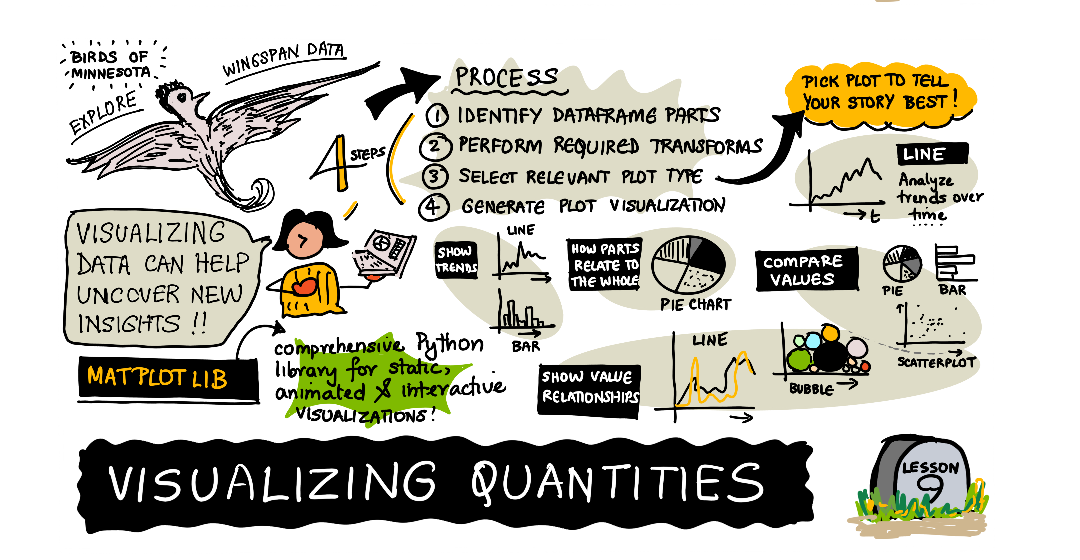 BIRDS OF
MINNESOTA
EXPLORE
WINGSPAN DATA
4 STEPS
PROCESS
1 IDENTIFY DATAFRAME PARTS
2 PERFORM REQUIRED TRANSFORMS
3 SELECT RELEVANT PLOT TYPE
4 GENERATE PLOT VISUALIZATION
PICK PLOT TO TELL
YOUR STORY BEST!
LINE
Analyze
trends over
time
t
VISUALIZING
DATA CAN HELP
UNCOVER NEW
INSIGHTS !!
SHOW
TRENDS
LINE
BAR
HOW PARTS
RELATE TO
THE WHOLE
PIE CHART
COMPARE
VALUES
PIE
BAR
SCATTERPLOT
MATPLOT LIB
comprehensive Python
library for static,
animated & interactive
VISUALIZATIONS!
SHOW VALUE
RELATIONSHIPS
LINE
BUBBLE
VISUALIZING QUANTITIES
LESSON
9